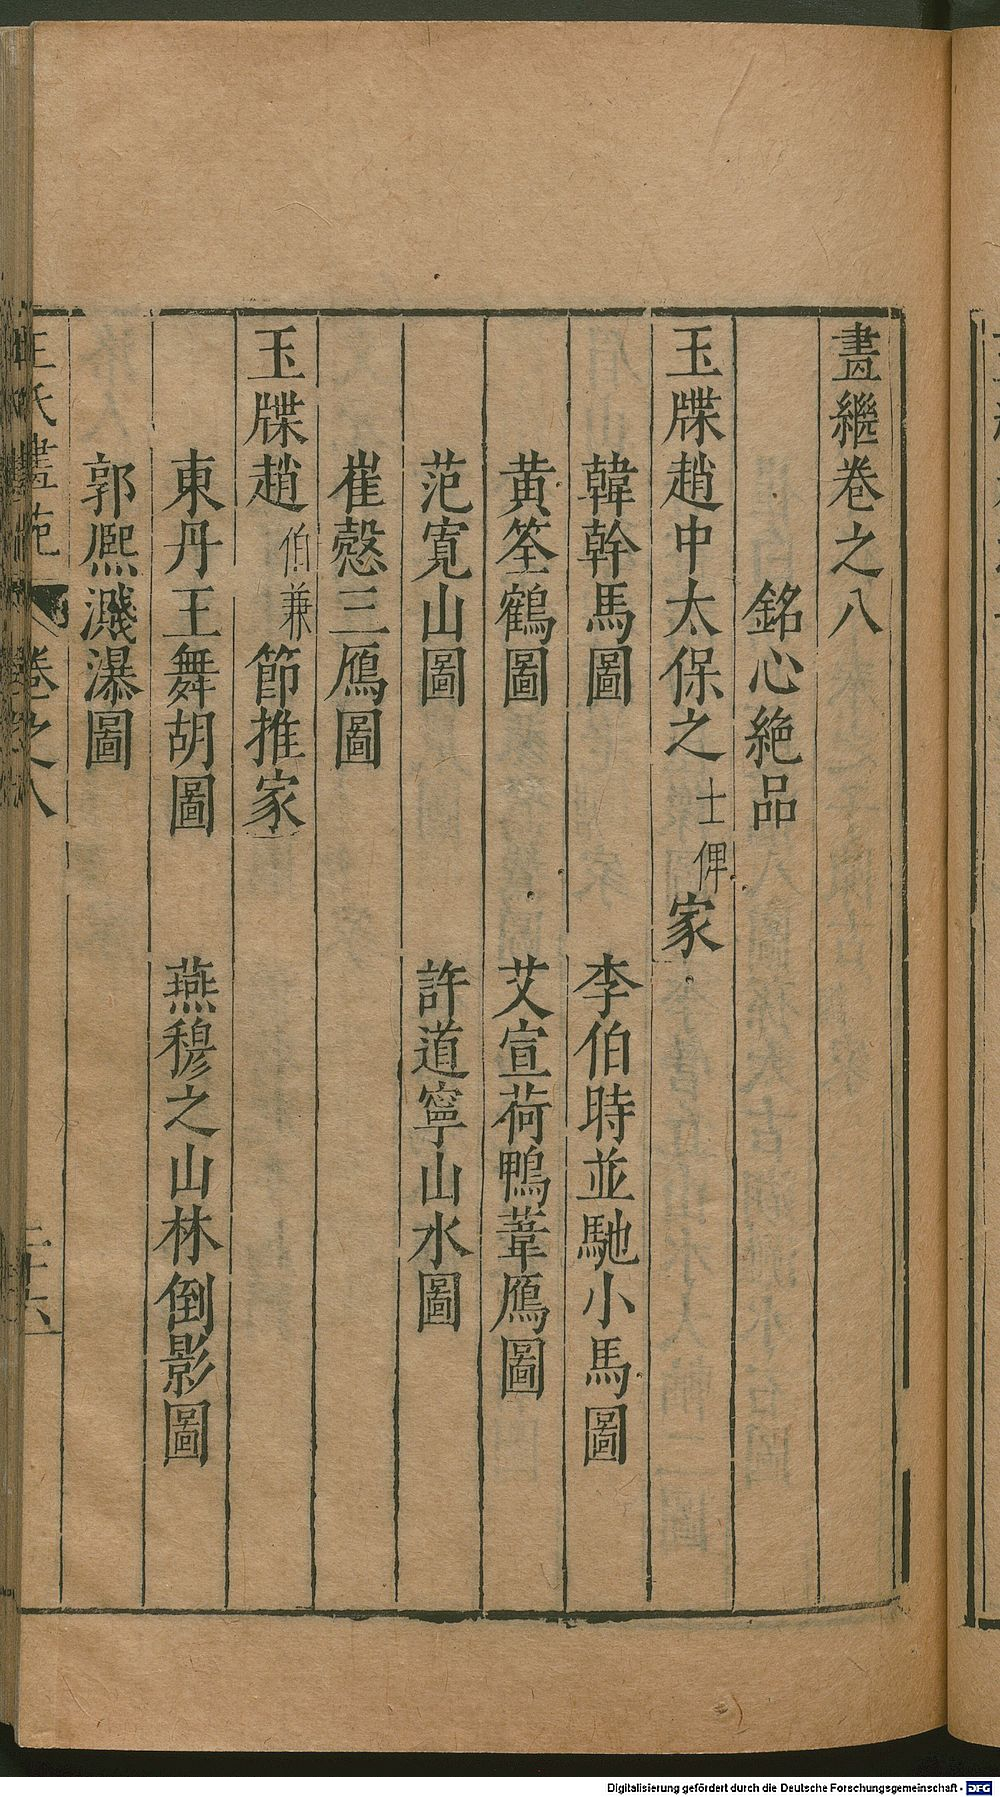 畫繼卷之八
銘心絶品
玉牒趙中太保之士俾家
韓幹馬圖　李伯時並馳小馬圖
黄筌鶴圖　艾宣荷鴨葦鴈圖
范寬山圖　許道寧山水圖
崔慤三鴈圖
玉牒趙伯兼節推家
東丹王舞胡圖　燕穆之山林倒影圖
郭熈濺瀑圖
王氏畫苑　卷之八　二十六
Digitalisierung gefördert durch die Deutsche Forschungsgemeinschaft - DFG